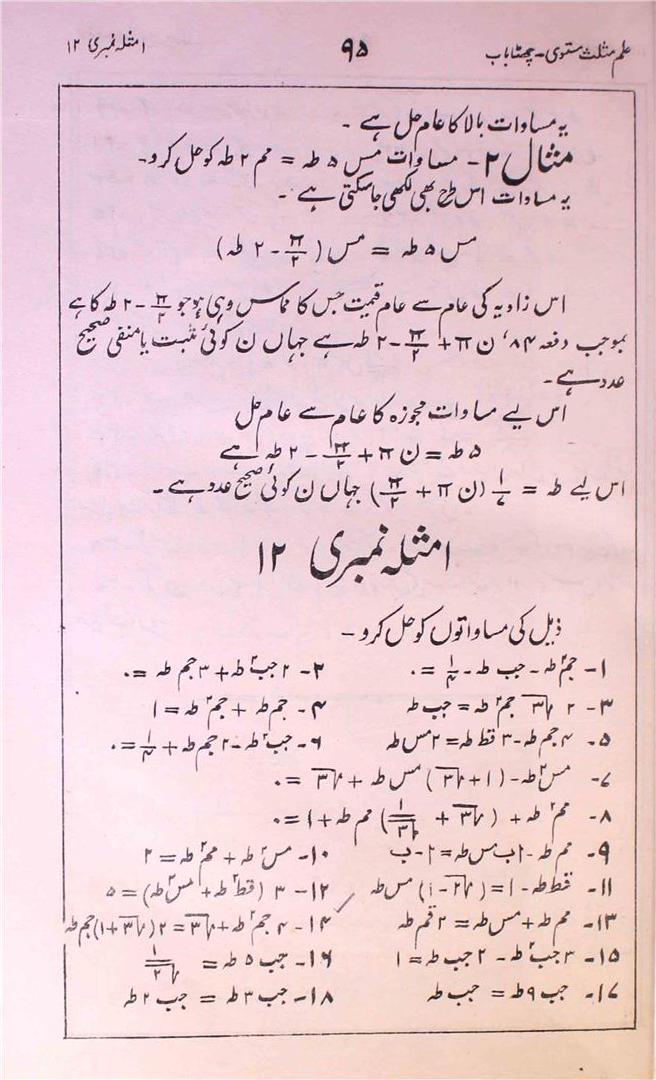 علم مثلث مستوی۔ چھٹا باب ۹۵ امثلہ نمبری ۱۲
یہ مساوات بالا کا عام حل ہے ۔
مثال ۲۔ مساوات مس ۵ طہ = مم ۲ طہ کو حل کرو۔
یہ مساوات اس طرح بھی لکھی جا سکتی ہے ۔
مس ۵ طہ = مس (π/۲ - ۲ طہ)
اس زاویہ کی عام سے عام قیمت جس کا مماس وہی ہو جو π/۲ - ۲ طہ کا ہے
بموجب دفعہ ۸۴، ن π + π/۲ - ۲ طہ ہے جہاں ن کوئی مثبت یا منفی صحیح
عدد ہے۔
اس لیے مساوات مجوزہ کا عام سے عام حل
۵ طہ = ن π + π/۲ - ۲ طہ ہے
اس لیے طہ = ۱/۷ (ن π + π/۲) جہاں ن کوئی صحیح عدد ہے۔
امثلہ نمبری ۱۲
ذیل کی مساواتوں کو حل کرو ۔
۱- جم۲ طہ - جب طہ - ۱/۴ = ۰ ۲- ۲ جب۲ طہ + ۳ جم طہ = ۰
۳- ۲ √۳ جم۲ طہ = جب طہ ۴- جم طہ + جم۲ طہ = ۱
۵- ۴ جم طہ - ۳ قط طہ = ۲ مس طہ ۶- جب۲ طہ - ۲ جم طہ + ۱/۴ = ۰
۷- مس۲ طہ - (۱ + √۳) مس طہ + √۳ = ۰
۸- مم۲ طہ + (√۳ + ۱/√۳) مم طہ + ۱ = ۰
۹- مم طہ - ا ب مس طہ = ا - ب ۱۰- مس۲ طہ + مم۲ طہ = ۲
۱۱- قط طہ - ۱ = (√۲ - ۱) مس طہ ۱۲- ۳ (قط۲ طہ + مس۲ طہ) = ۵
۱۳- مم طہ + مس طہ = ۲ قم طہ ۱۴- ۴ جم۲ طہ + √۳ = ۲ (√۳ + ۱) جم طہ
۱۵- ۳ جب۲ طہ - ۲ جب طہ = ۱ ۱۶- جب ۵ طہ = ۱/√۲
۱۷- جب ۹ طہ = جب طہ ۱۸- جب ۳ طہ = جب ۲ طہ